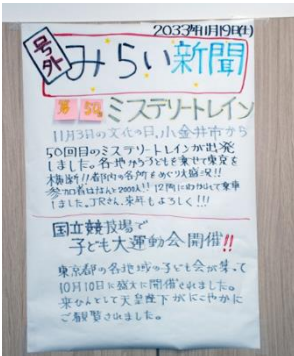 2033年11月19日(土)
号外
みらい新聞
第50回 ミステリートレイン
11月3日の文化の日、小金井市から
50回目のミステリートレインが出発
しました。各地から子どもを乗せて東京を
横断!!都内の名所をめぐり大盛況!!
参加者はなんと2000人!!12両にわかれて乗車
しました。JRさん、来年もよろしく!!!
国立競技場で
子ども大運動会開催!!
東京都の各地域の子ども会が募って
10月10日に盛大に開催されました。
来ひんとして天皇陛下がにこやかに
ご観覧されました。